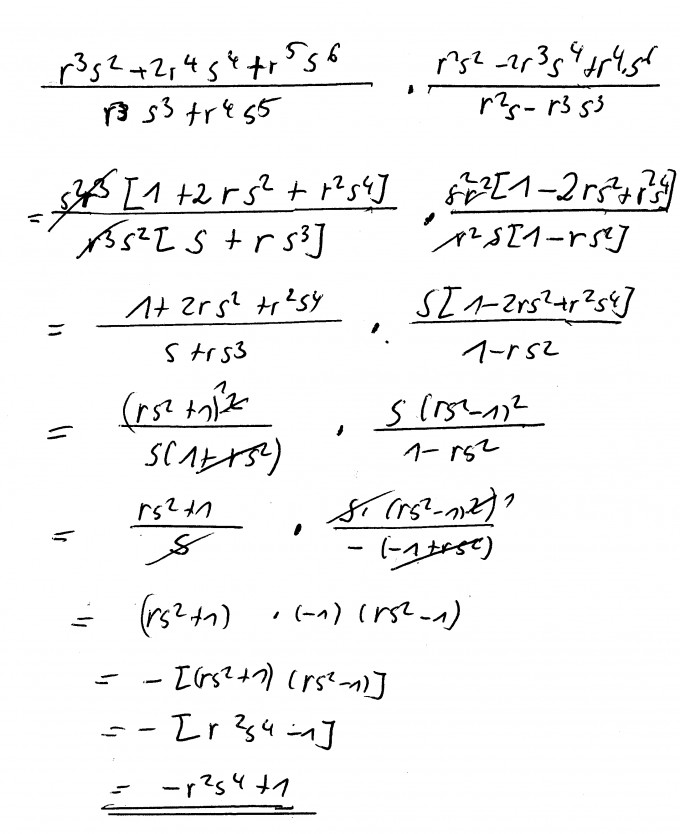 (r³s² + 2r⁴s⁴ + r⁵s⁶)/(r³s³ + r⁴s⁵) · (r²s² - 2r³s⁴ + r⁴s⁶)/(r²s - r³s³)
= s²r³[1 + 2rs² + r²s⁴]/r³s²[s + rs³] · s²r²[1 - 2rs² + r²s⁴]/r²s[1 - rs²]
= (1 + 2rs² + r²s⁴)/(s + rs³) · s[1 - 2rs² + r²s⁴]/(1 - rs²)
= (rs² + 1)²/s(1 + rs²) · s(rs² - 1)²/(1 - rs²)
= (rs² + 1)/s · s·(rs² - 1)²/-(-1 + rs²)
= (rs² + 1) · (-1) (rs² - 1)
= - [(rs² + 1) (rs² - 1)]
= - [r²s⁴ - 1]
= -r²s⁴ + 1